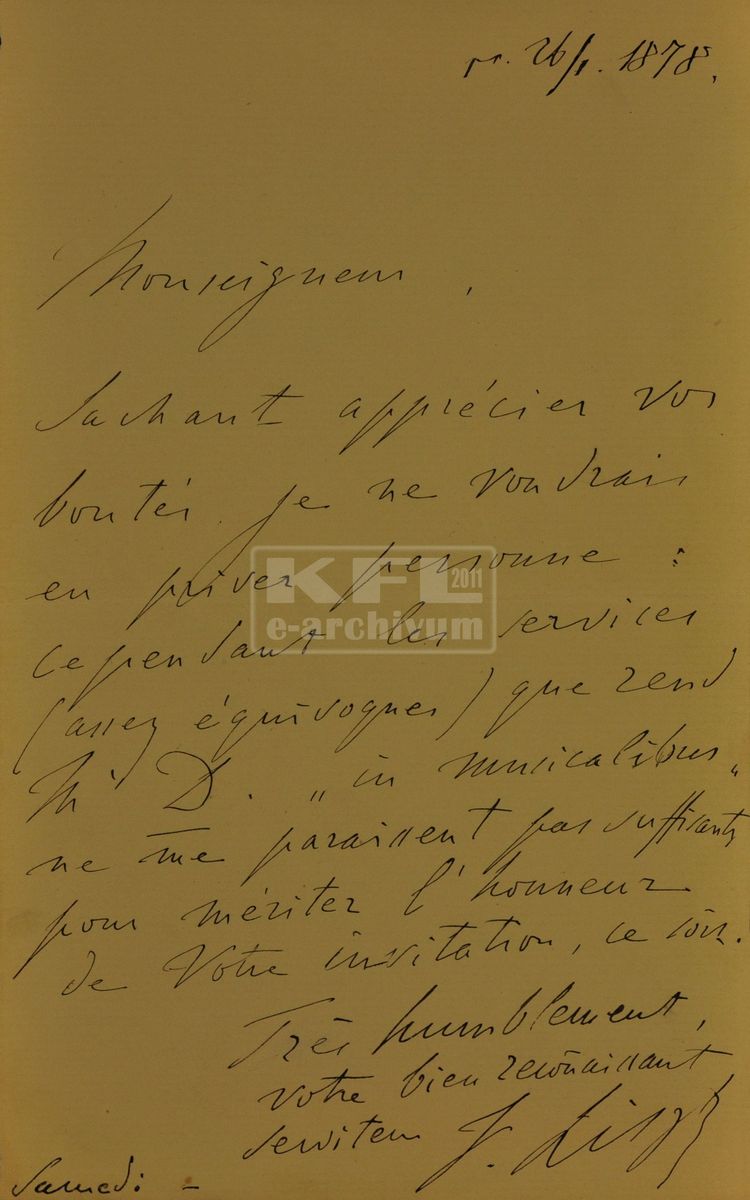 26/1. 1878.
Monseigneur,
Sachant apprécier vos
bontés je ne voudrais
en priver personne :
KFL 2011
e-archivum
cependant les services
(assez équivoques) que rend
Mr D. „in musicalibus„
ne me paraissent pas suffisants
pour mériter l'honneur
de Votre invitation, ce soir.
Très humblement,
votre bien reconaissant
serviteur F. Liszt
Samedi -